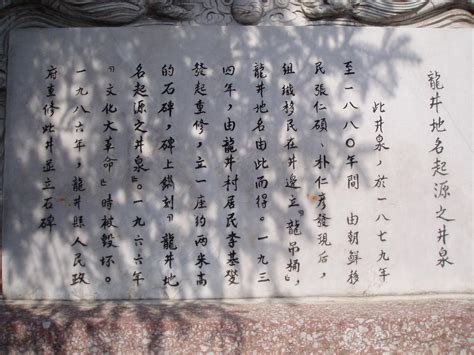 龍井地名起源之井泉
此井泉，於一八七九年
至一八八〇年間　由朝鮮移
民張仁碩、朴仁彦發現后，
組織移民在井邊立『龍吊桶』，
龍井地名由此而得。一九三
四年，由龍井村居民李基燮
發起重修，立一座約两米高
的石碑，碑上鐫刻『龍井地
名起源之井泉』。一九六六年
『文化大革命』時被毀坏。
一九八六年，龍井縣人民政
府重修此井並立石碑